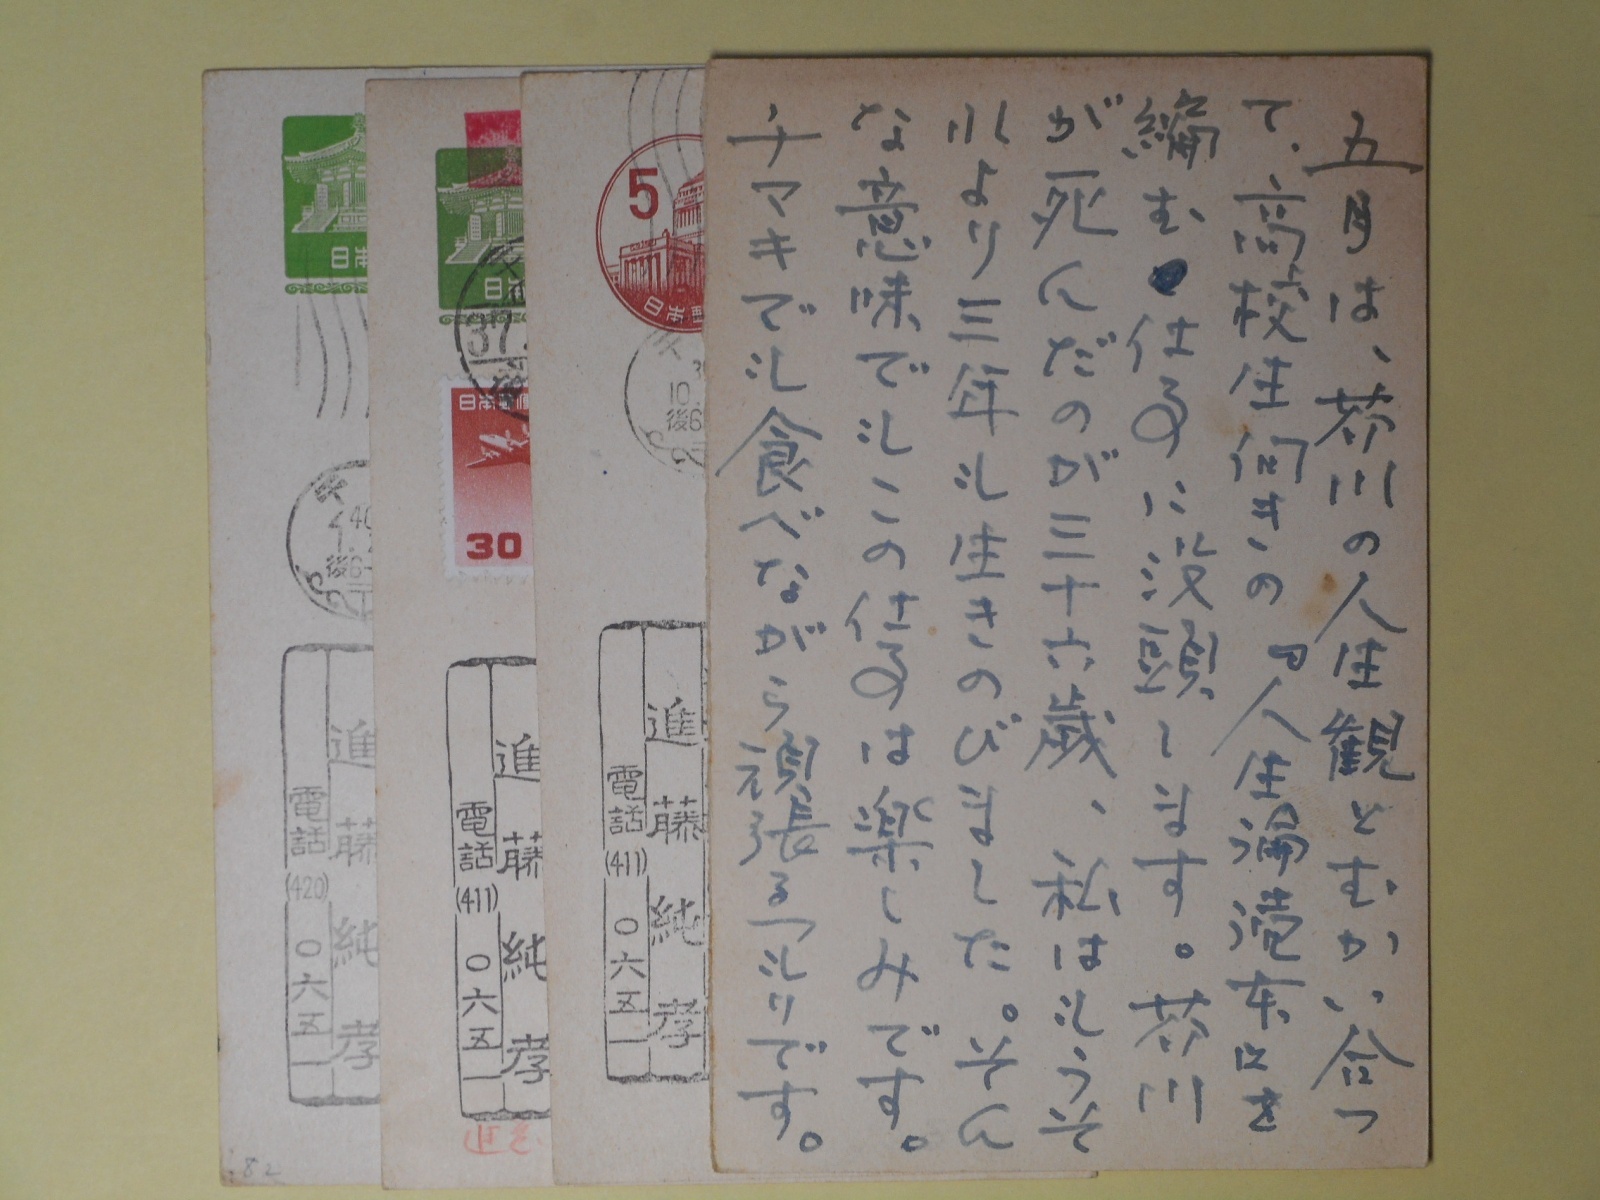 五月は、芥川の人生観とむかい合つ
て、高校生向きの『人生論読本』を
編む仕事に没頭します。芥川
が死んだのが三十六歳、私はもうそ
れより三年も生きのびました。そん
な意味でもこの仕事は楽しみです。
チマキでも食べながら頑張るつもりです。
5
日本郵
10.
後6
進藤純孝
電話(411)〇六五一
日本
37.
日本郵便
30
進藤純孝
電話(411)〇六五一
日本
40
後6-
進藤純孝
電話(420)〇六五一
82